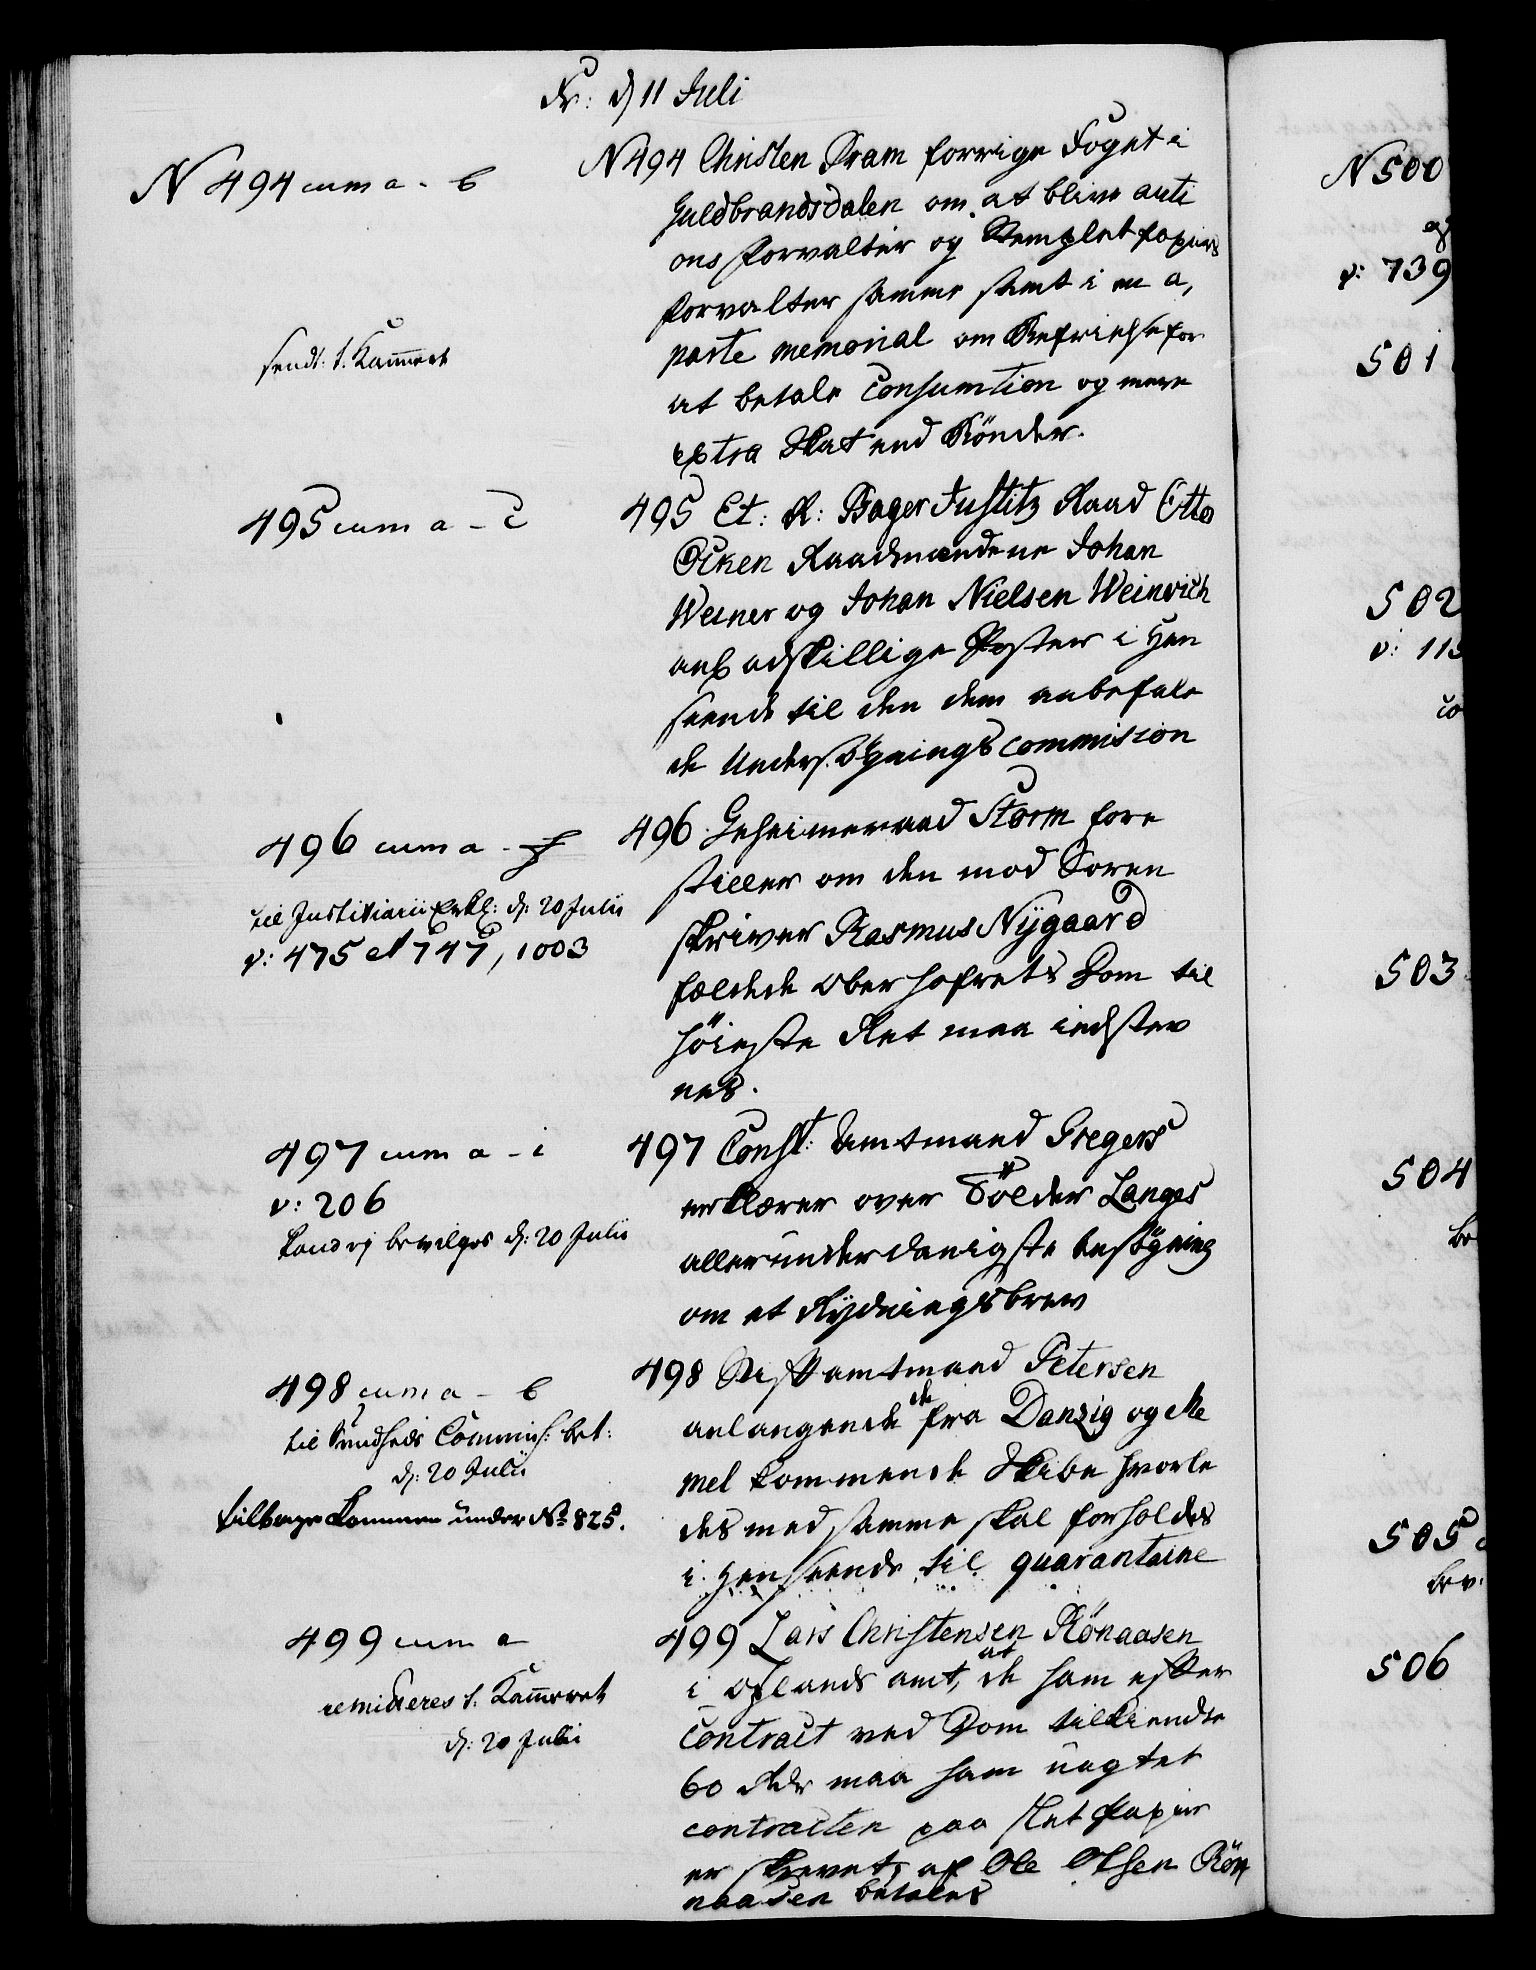 Fr: d 11 Juli
N 494 cum a - b
sendt: t. Kammert
N 494 Christen Pram forrige Foget i
Guldbrandsdalen om at blive aucti
ons forvalter og Stemplet papiirs
forvalter samme samt i en a,
parte memorial om Befrielse for
at betale Consumtion og mere
extra Skat end Bönder.
495 cum a - c
495 Et: R: Bager Justitz Raad Otto
Ocken Raadmændene Johan
Weiner og Johan Nielsen Weinrich
anb adskillige Poster i Hen
seende til den dem anbefale
de Undersögnings commission
496 cum a - f
til Justitiarii Erkl: d: 20 Julii
v: 475 et 747, 1003
496 Geheimeraad Storm fore
stiller om den mod Soren
skriver Rasmus Nÿgaard
fældede Oberhofrets Dom til
höieste Ret maa indstev
nes.
497 cum a - i
v: 206
kand ej bevilges d: 20 Julii
497 Const: Amtmand Gregers
erklærer over Tölder Langes
allerunderdanigste Ansögning
om et Rÿdningsbrev
498 cum a - b
til Sundheds Commiss: bet:
d: 20 Julii
tilbagekommen under No 825.
498 Stiftamtmand Petersen
anlangende de fra Danzig og Me
mel kommende Skibe hvorle
des med samme skal forholdes
i Henseende til quarantaine
499 cum a
remitteres t. Kammeret
d: 20 Julii
499 Lars Christensen Rönaasen
i Oplands amt, at de ham efter
Contract ved Dom tilkiendte
60 Rdr maa ham uagtet
contracten paa slet Papiir
er skrevet, af Ole Olsen Rön
naasen betales
N 500
v: 739
501
502
503
504
505
506